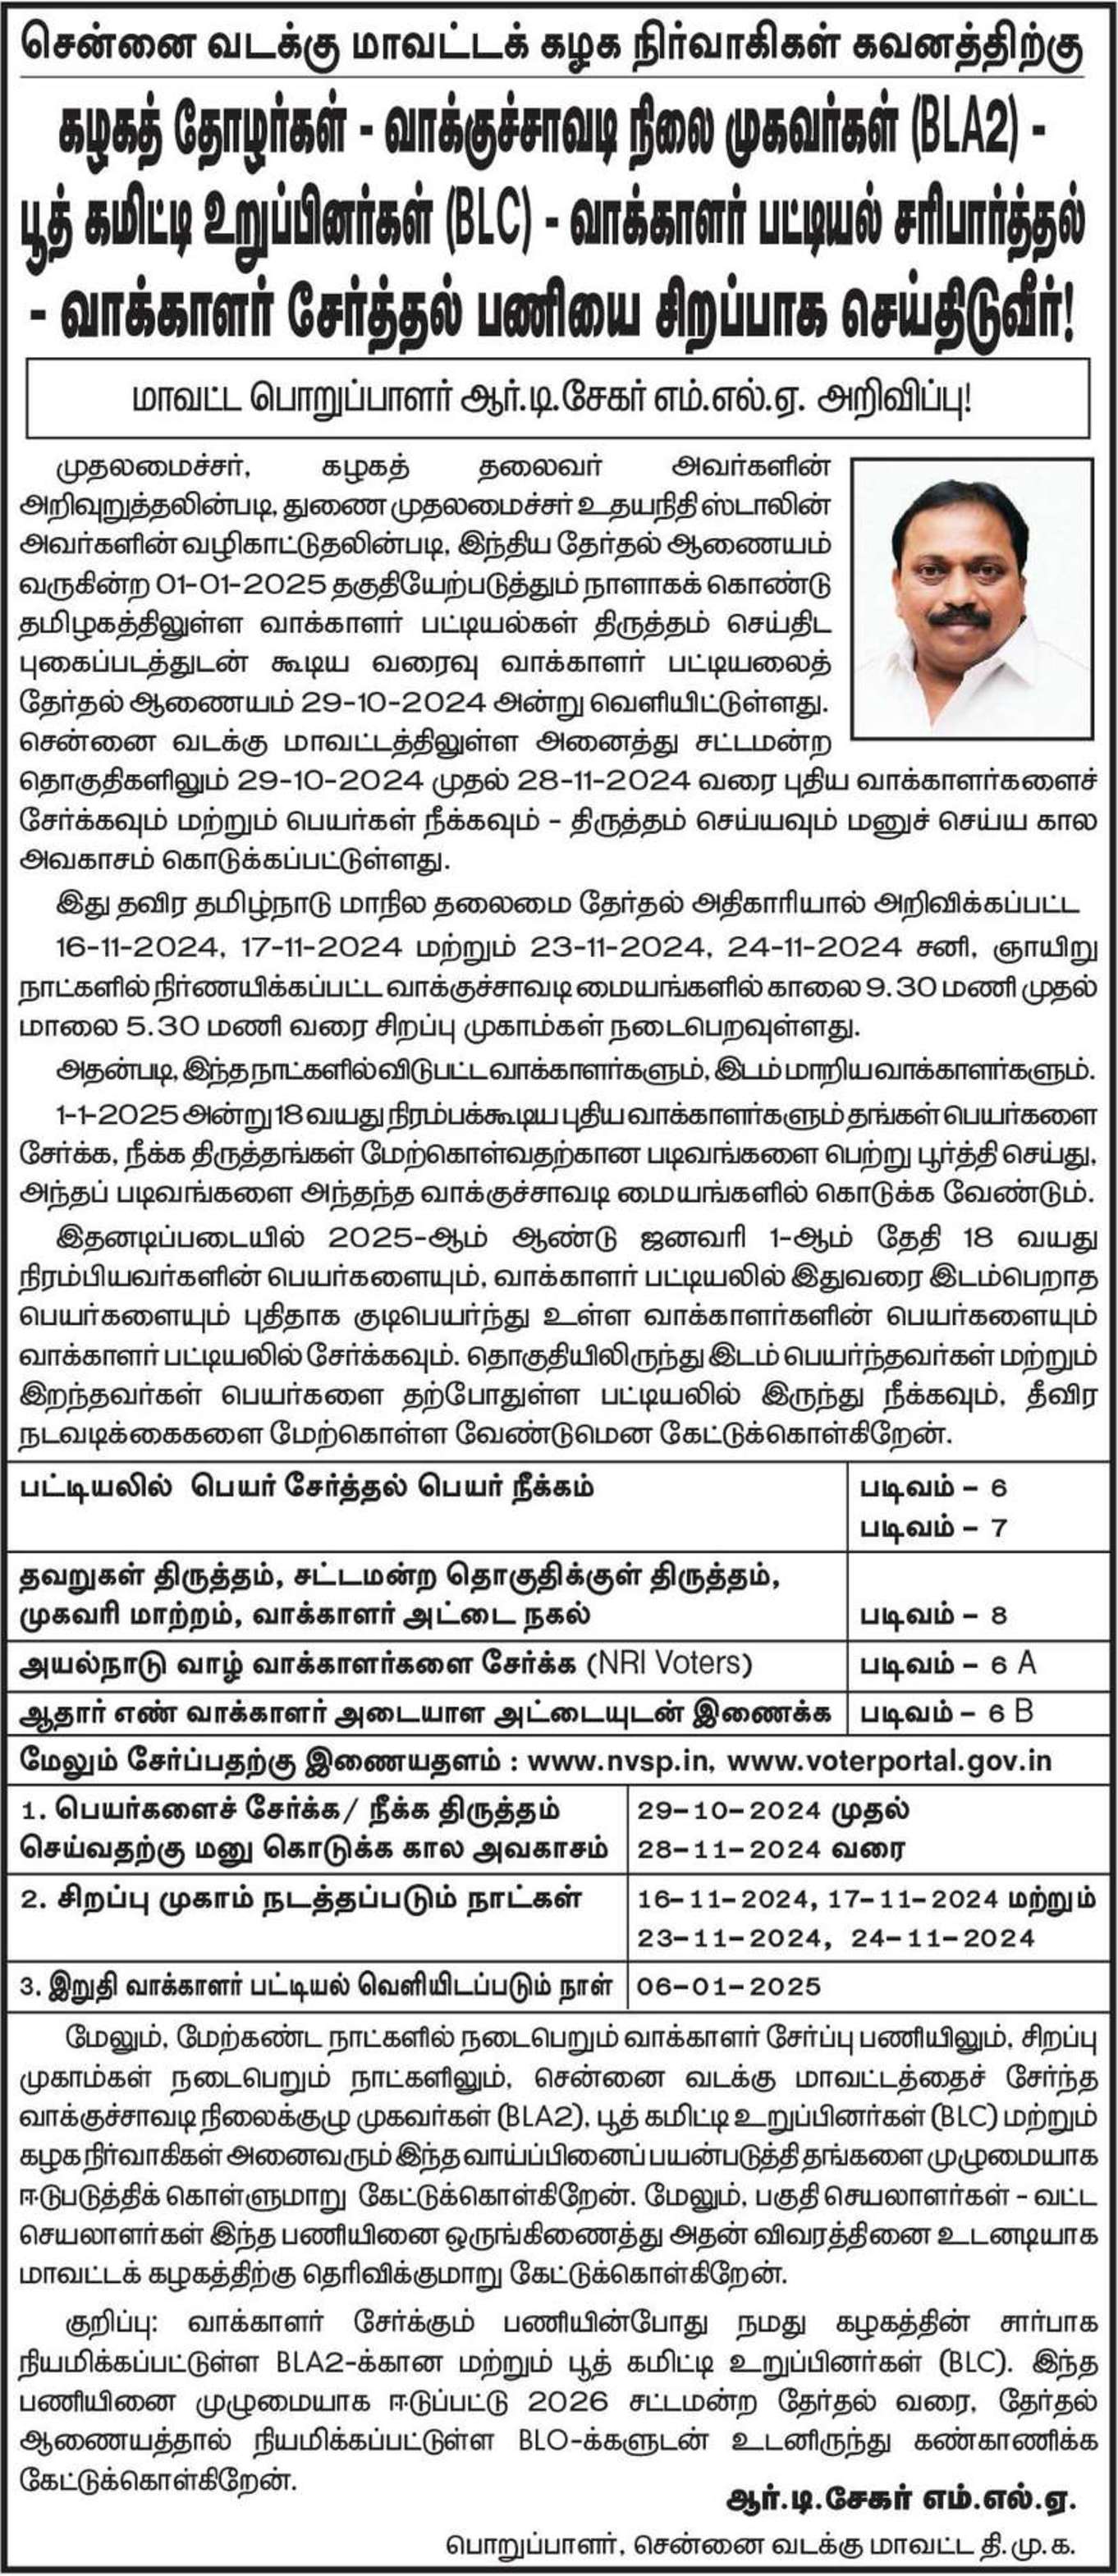 சென்னை வடக்கு மாவட்டக் கழக நிர்வாகிகள் கவனத்திற்கு
கழகத் தோழர்கள் - வாக்குச்சாவடி நிலை முகவர்கள் (BLA2) -
பூத் கமிட்டி உறுப்பினர்கள் (BLC) - வாக்காளர் பட்டியல் சரிபார்த்தல்
- வாக்காளர் சேர்த்தல் பணியை சிறப்பாக செய்திடுவீர்!
மாவட்ட பொறுப்பாளர் ஆர்.டி.சேகர் எம்.எல்.ஏ. அறிவிப்பு!
முதலமைச்சர், கழகத் தலைவர் அவர்களின்
அறிவுறுத்தலின்படி, துணை முதலமைச்சர் உதயநிதி ஸ்டாலின்
அவர்களின் வழிகாட்டுதலின்படி, இந்திய தேர்தல் ஆணையம்
வருகின்ற 01-01-2025 தகுதியேற்படுத்தும் நாளாகக் கொண்டு
தமிழகத்திலுள்ள வாக்காளர் பட்டியல்கள் திருத்தம் செய்திட
புகைப்படத்துடன் கூடிய வரைவு வாக்காளர் பட்டியலைத்
தேர்தல் ஆணையம் 29-10-2024 அன்று வெளியிட்டுள்ளது.
சென்னை வடக்கு மாவட்டத்திலுள்ள அனைத்து சட்டமன்ற
தொகுதிகளிலும் 29-10-2024 முதல் 28-11-2024 வரை புதிய வாக்காளர்களைச்
சேர்க்கவும் மற்றும் பெயர்கள் நீக்கவும் - திருத்தம் செய்யவும் மனுச் செய்ய கால
அவகாசம் கொடுக்கப்பட்டுள்ளது.
இது தவிர தமிழ்நாடு மாநில தலைமை தேர்தல் அதிகாரியால் அறிவிக்கப்பட்ட
16-11-2024, 17-11-2024 மற்றும் 23-11-2024, 24-11-2024 சனி, ஞாயிறு
நாட்களில் நிர்ணயிக்கப்பட்ட வாக்குச்சாவடி மையங்களில் காலை 9.30 மணி முதல்
மாலை 5.30 மணி வரை சிறப்பு முகாம்கள் நடைபெறவுள்ளது.
அதன்படி, இந்த நாட்களில் விடுபட்ட வாக்காளர்களும், இடம் மாறிய வாக்காளர்களும்.
1-1-2025 அன்று 18 வயது நிரம்பக்கூடிய புதிய வாக்காளர்களும் தங்கள் பெயர்களை
சேர்க்க, நீக்க திருத்தங்கள் மேற்கொள்வதற்கான படிவங்களை பெற்று பூர்த்தி செய்து,
அந்தப் படிவங்களை அந்தந்த வாக்குச்சாவடி மையங்களில் கொடுக்க வேண்டும்.
இதனடிப்படையில் 2025-ஆம் ஆண்டு ஜனவரி 1-ஆம் தேதி 18 வயது
நிரம்பியவர்களின் பெயர்களையும், வாக்காளர் பட்டியலில் இதுவரை இடம்பெறாத
பெயர்களையும் புதிதாக குடிபெயர்ந்து உள்ள வாக்காளர்களின் பெயர்களையும்
வாக்காளர் பட்டியலில் சேர்க்கவும். தொகுதியிலிருந்து இடம் பெயர்ந்தவர்கள் மற்றும்
இறந்தவர்கள் பெயர்களை தற்போதுள்ள பட்டியலில் இருந்து நீக்கவும், தீவிர
நடவடிக்கைகளை மேற்கொள்ள வேண்டுமென கேட்டுக்கொள்கிறேன்.
பட்டியலில் பெயர் சேர்த்தல் பெயர் நீக்கம் படிவம் - 6
படிவம் - 7
தவறுகள் திருத்தம், சட்டமன்ற தொகுதிக்குள் திருத்தம்,
முகவரி மாற்றம், வாக்காளர் அட்டை நகல் படிவம் - 8
அயல்நாடு வாழ் வாக்காளர்களை சேர்க்க (NRI Voters) படிவம் - 6 A
ஆதார் எண் வாக்காளர் அடையாள அட்டையுடன் இணைக்க படிவம் - 6 B
மேலும் சேர்ப்பதற்கு இணையதளம் : www.nvsp.in, www.voterportal.gov.in
1. பெயர்களைச் சேர்க்க/ நீக்க திருத்தம் 29-10-2024 முதல்
செய்வதற்கு மனு கொடுக்க கால அவகாசம் 28-11-2024 வரை
2. சிறப்பு முகாம் நடத்தப்படும் நாட்கள் 16-11-2024, 17-11-2024 மற்றும்
23-11-2024, 24-11-2024
3. இறுதி வாக்காளர் பட்டியல் வெளியிடப்படும் நாள் 06-01-2025
மேலும், மேற்கண்ட நாட்களில் நடைபெறும் வாக்காளர் சேர்ப்பு பணியிலும், சிறப்பு
முகாம்கள் நடைபெறும் நாட்களிலும், சென்னை வடக்கு மாவட்டத்தைச் சேர்ந்த
வாக்குச்சாவடி நிலைக்குழு முகவர்கள் (BLA2), பூத் கமிட்டி உறுப்பினர்கள் (BLC) மற்றும்
கழக நிர்வாகிகள் அனைவரும் இந்த வாய்ப்பினைப் பயன்படுத்தி தங்களை முழுமையாக
ஈடுபடுத்திக் கொள்ளுமாறு கேட்டுக்கொள்கிறேன். மேலும், பகுதி செயலாளர்கள் - வட்ட
செயலாளர்கள் இந்த பணியினை ஒருங்கிணைத்து அதன் விவரத்தினை உடனடியாக
மாவட்டக் கழகத்திற்கு தெரிவிக்குமாறு கேட்டுக்கொள்கிறேன்.
குறிப்பு: வாக்காளர் சேர்க்கும் பணியின்போது நமது கழகத்தின் சார்பாக
நியமிக்கப்பட்டுள்ள BLA2-க்கான மற்றும் பூத் கமிட்டி உறுப்பினர்கள் (BLC). இந்த
பணியினை முழுமையாக ஈடுப்பட்டு 2026 சட்டமன்ற தேர்தல் வரை, தேர்தல்
ஆணையத்தால் நியமிக்கப்பட்டுள்ள BLO-க்களுடன் உடனிருந்து கண்காணிக்க
கேட்டுக்கொள்கிறேன்.
ஆர்.டி.சேகர் எம்.எல்.ஏ.
பொறுப்பாளர், சென்னை வடக்கு மாவட்ட தி.மு.க.